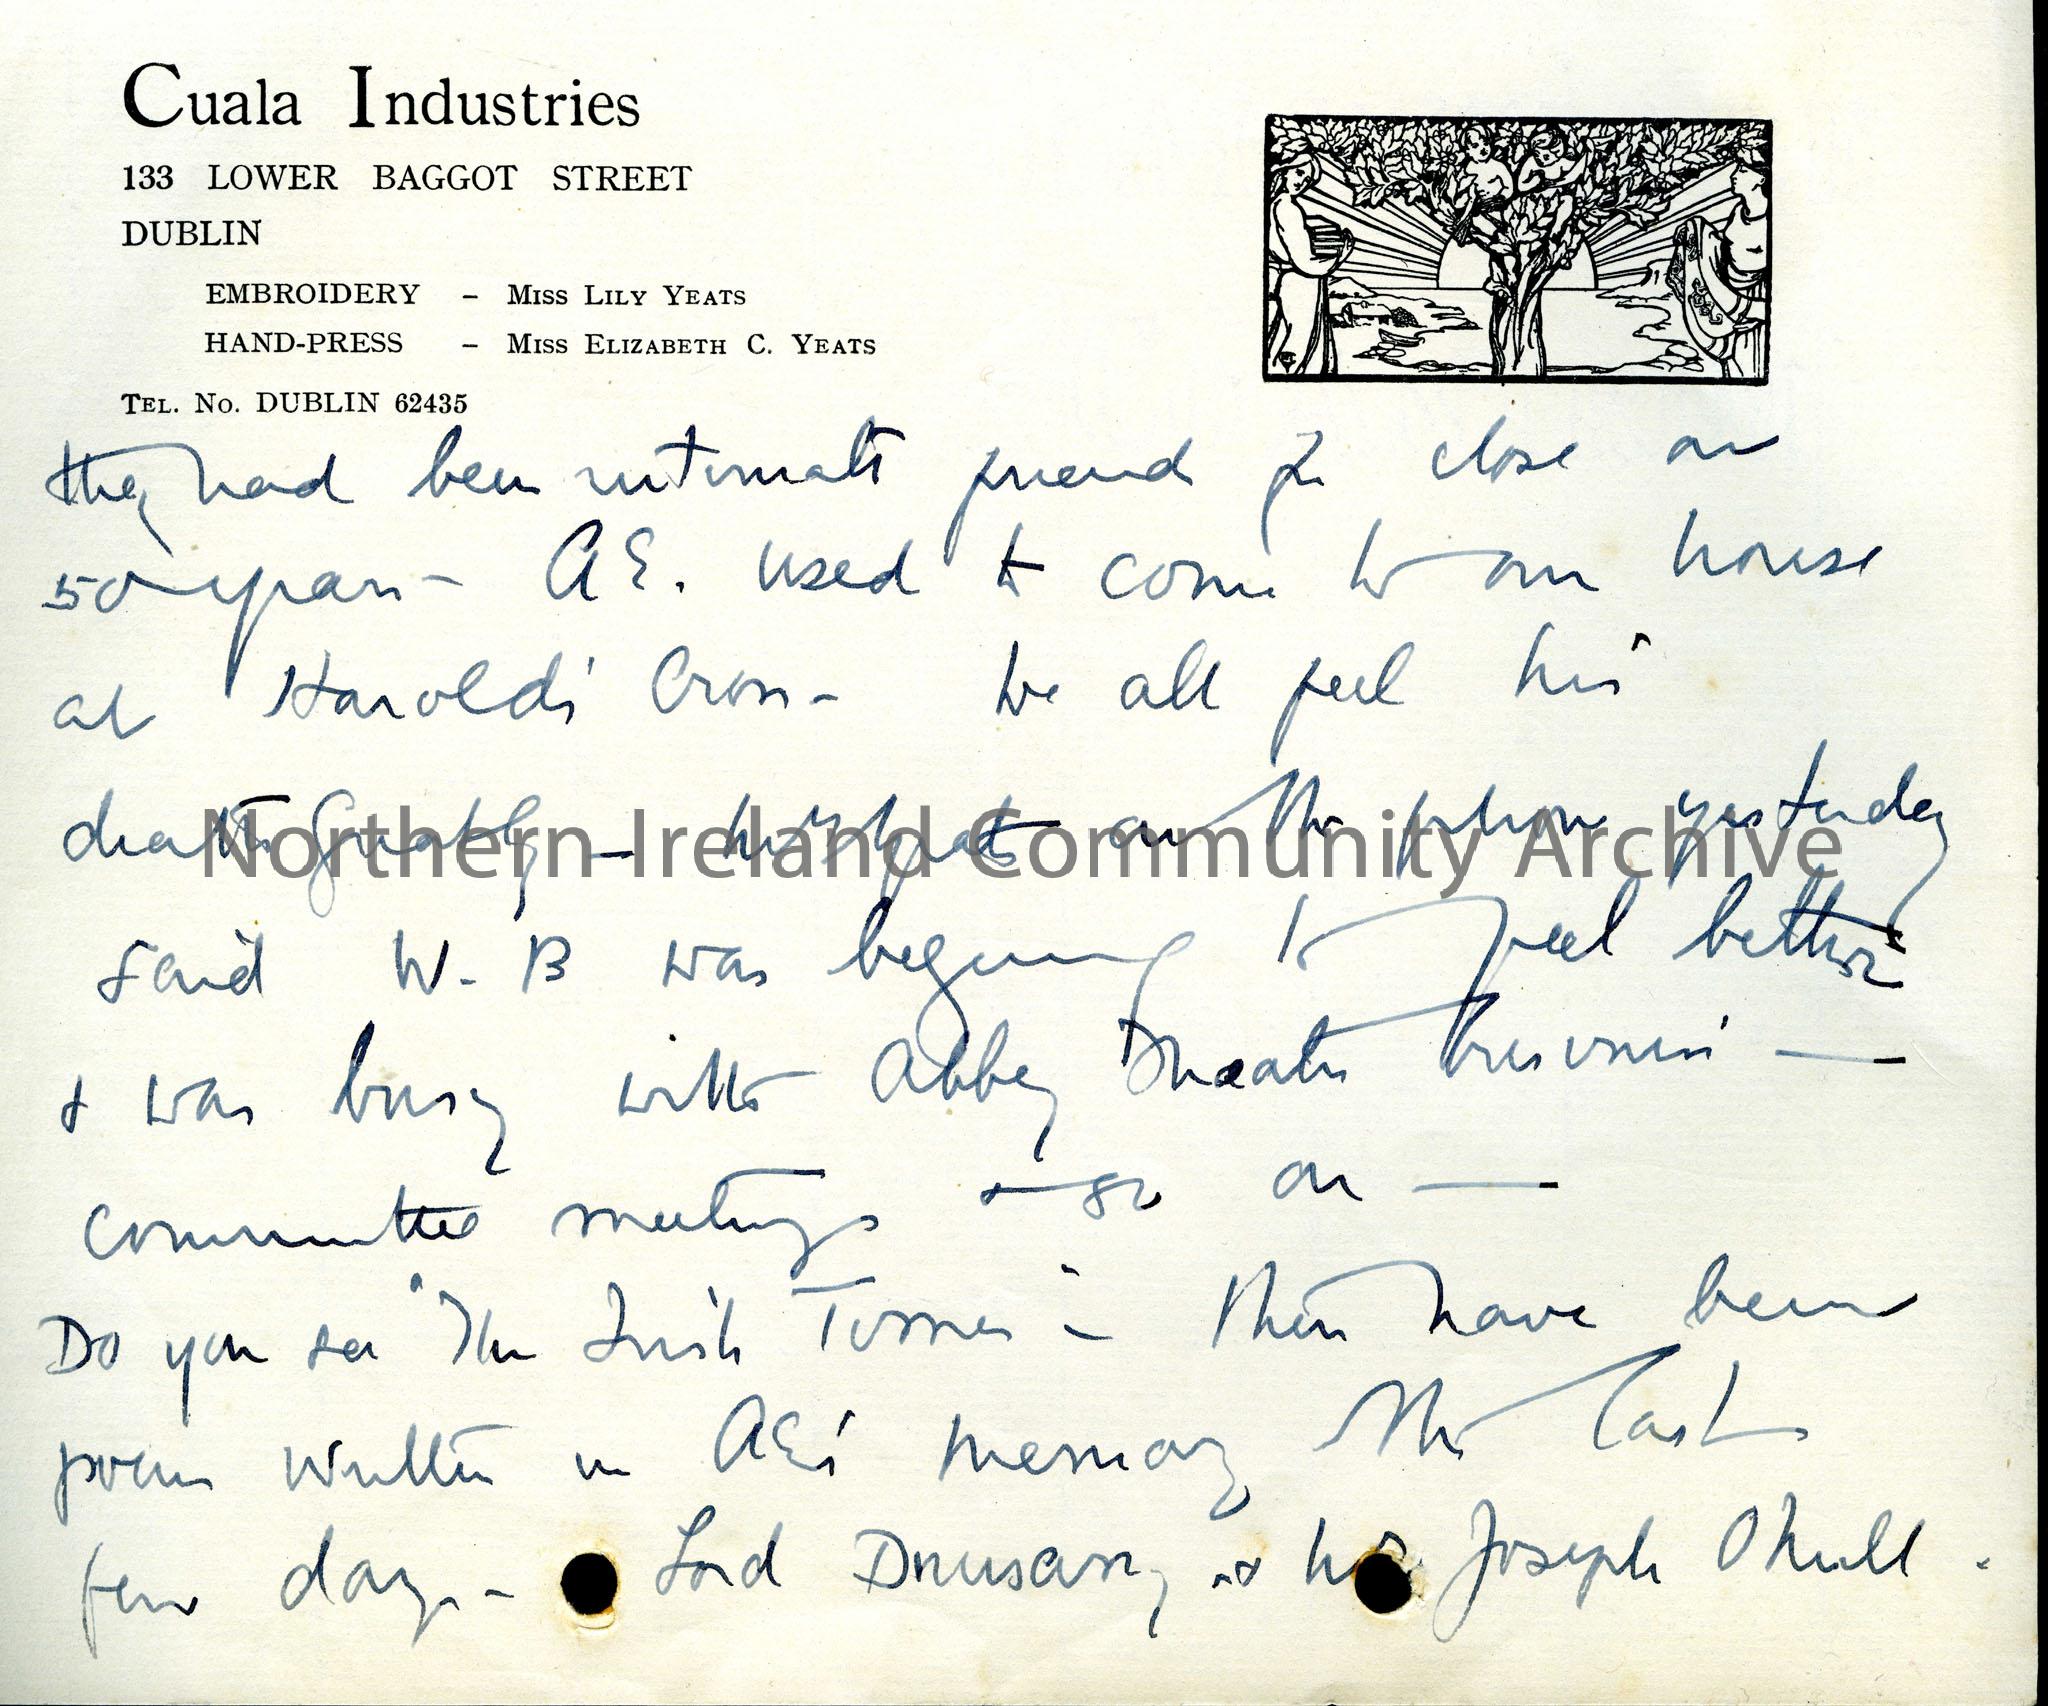 Cuala Industries
133 LOWER BAGGOT STREET
DUBLIN
EMBROIDERY - MISS LILY YEATS
HAND-PRESS - MISS ELIZABETH C. YEATS
TEL. NO. DUBLIN 62435
they had been intimate friends for close on
50 years - AE. used to come to our house
at Harold's Cross - We all feel his
death greatly - Mrs Yeats on the phone yesterday
said W. B was beginning to feel better
& was busy with Abbey Theatre business -
committee meetings & so on -
Do you see "The Irish Times" - there have been
poems written in AE's memory the last
few days - Lord Dunsany & Mrs Joseph O'Neill -
Northern Ireland Community Archive